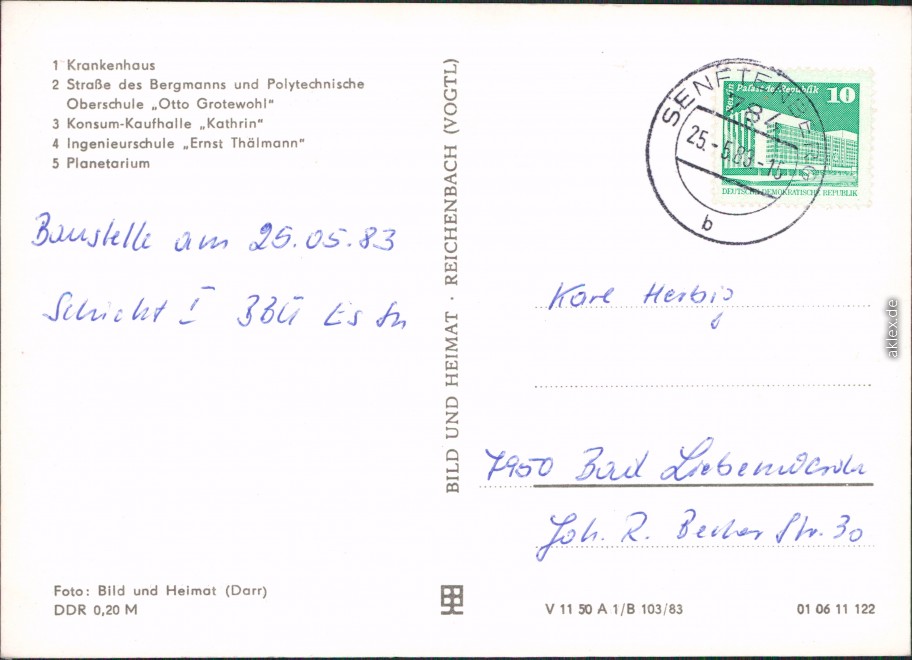 1 Krankenhaus
2 Straße des Bergmanns und Polytechnische
Oberschule „Otto Grotewohl“
3 Konsum-Kaufhalle „Kathrin“
4 Ingenieurschule „Ernst Thälmann“
5 Planetarium
Baustelle am 25.05.83
Schicht I BBU
Foto: Bild und Heimat (Darr)
DDR 0,20 M
BILD UND HEIMAT · REICHENBACH (VOGTL)
SENFTENBERG
784
25.-5.83-16
b
Palast der Republik 10
DEUTSCHE DEMOKRATISCHE REPUBLIK
Karl Herbig
7950 Bad Liebenwerda
Joh. R. Becher Str. 30
V 11 50 A 1/B 103/83
01 06 11 122
aklex.de